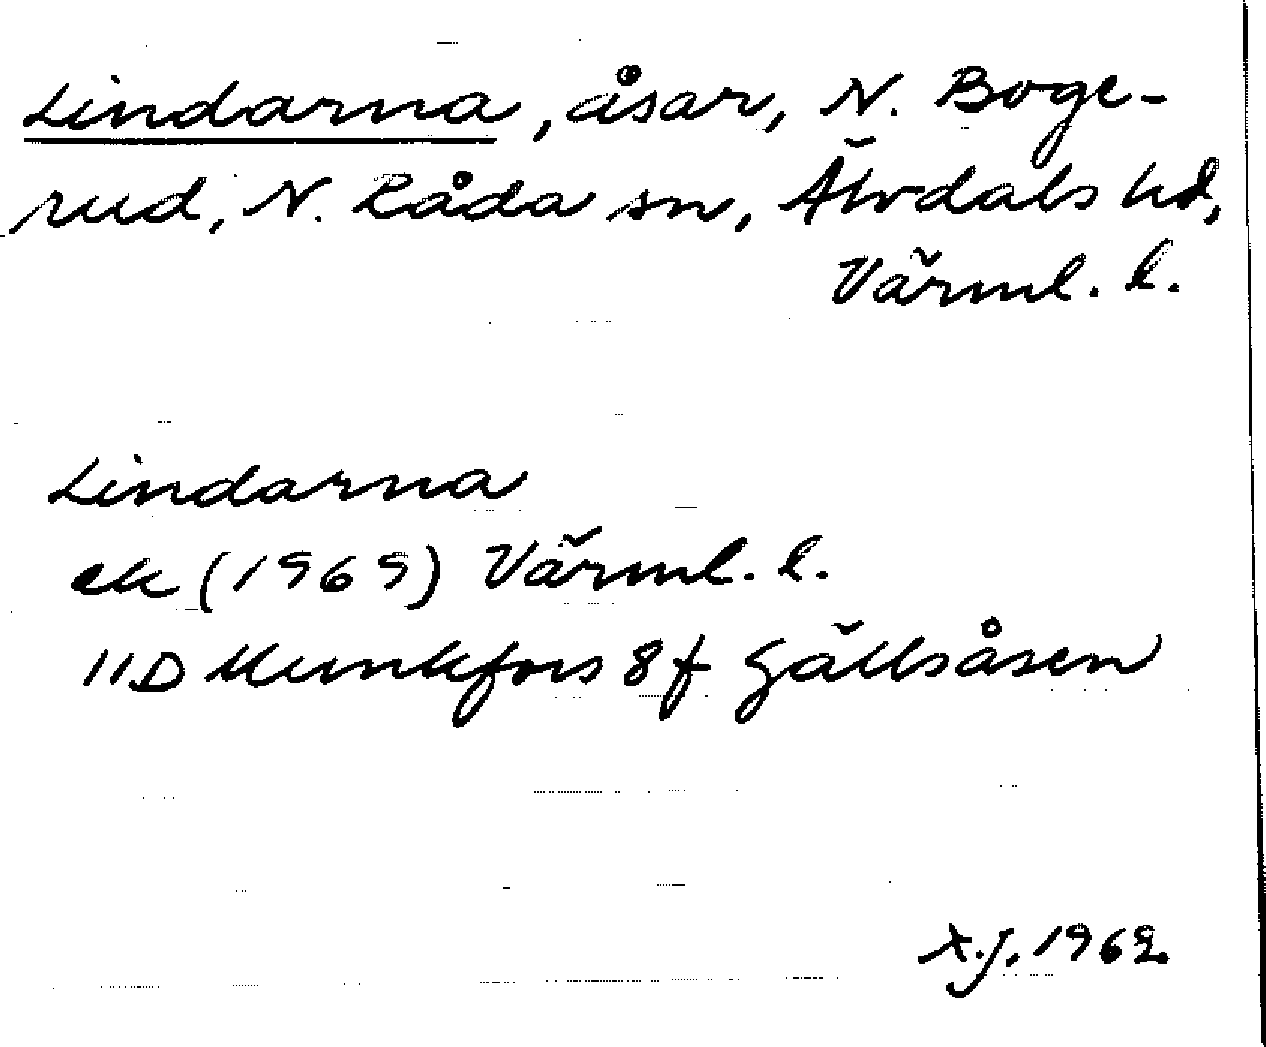 Lindarna, åsar, N. Boge-
rud, N. Råda sn, Älvdals hd,
Värml. l.
Lindarna
ek (1969) Värml. l.
11D Munkfors 8f Gällsåsen
X.J. 1969.